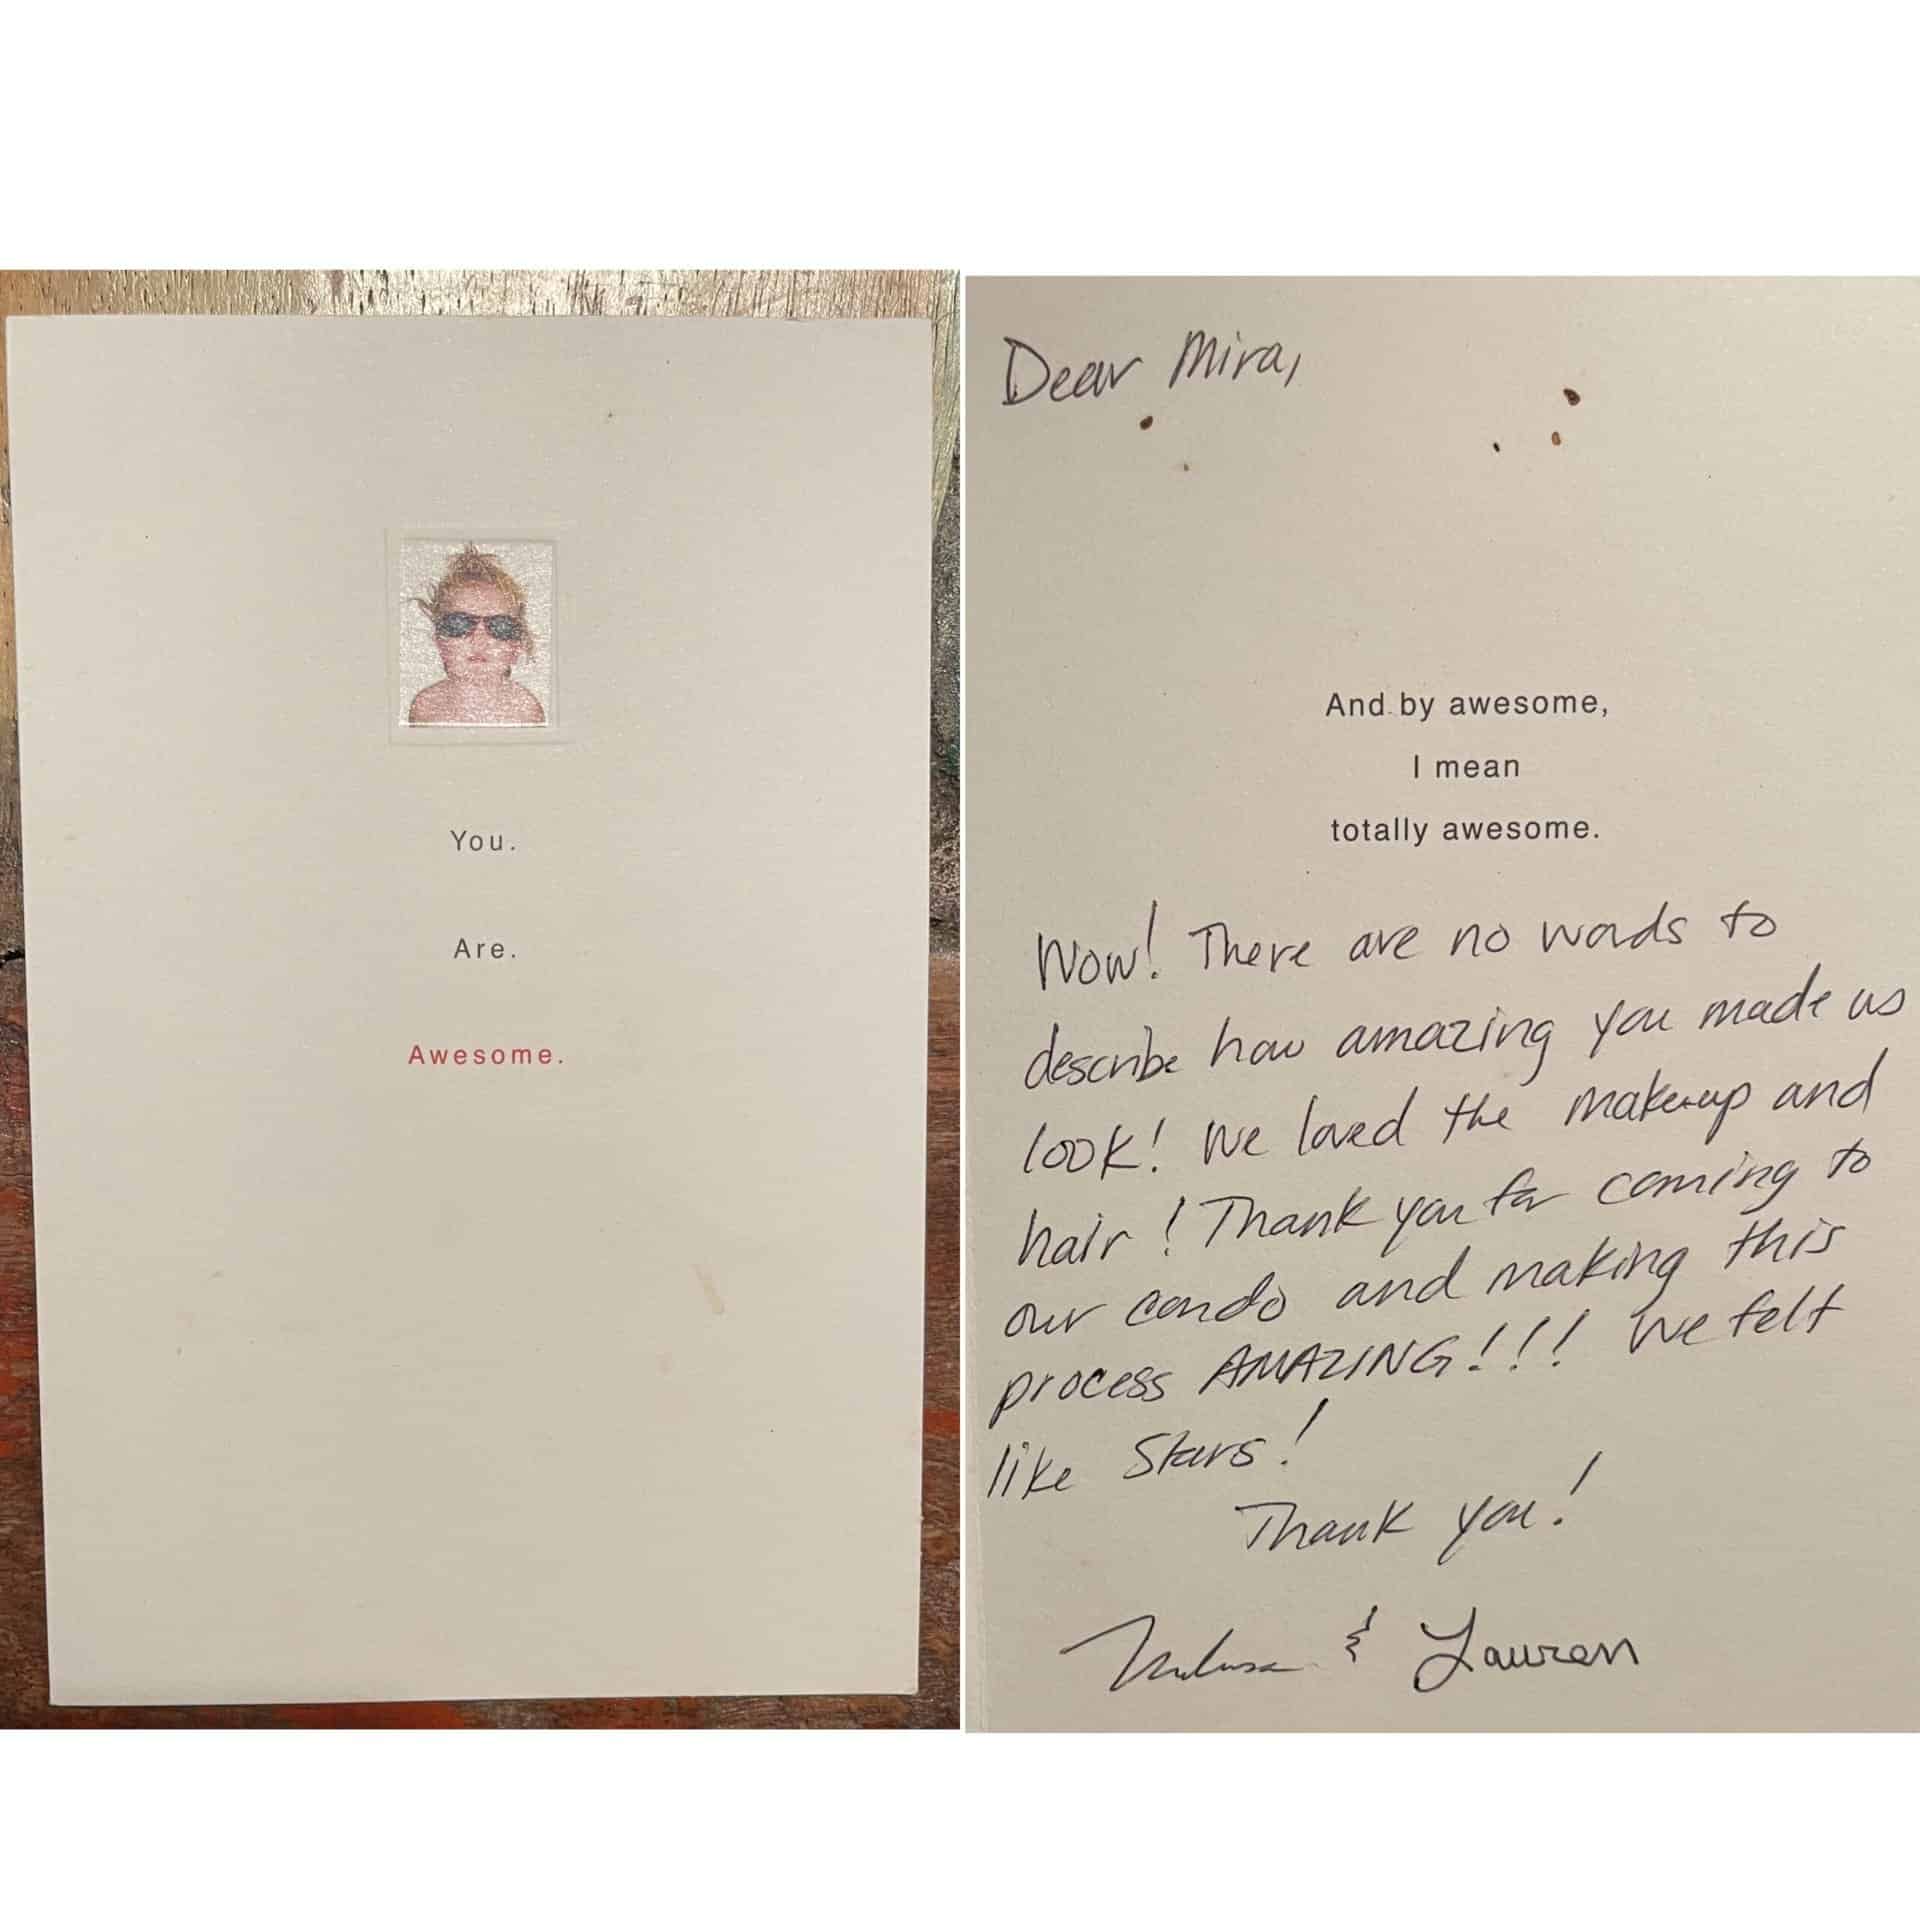 You.
Are.
Awesome.
Dear Mira,
And by awesome,
I mean
totally awesome.
Wow! There are no words to
describe how amazing you made us
look! We loved the makeup and
hair! Thank you for coming to
our condo and making this
process AMAZING!!! We felt
like Stars!
Thank you!
& Lauren